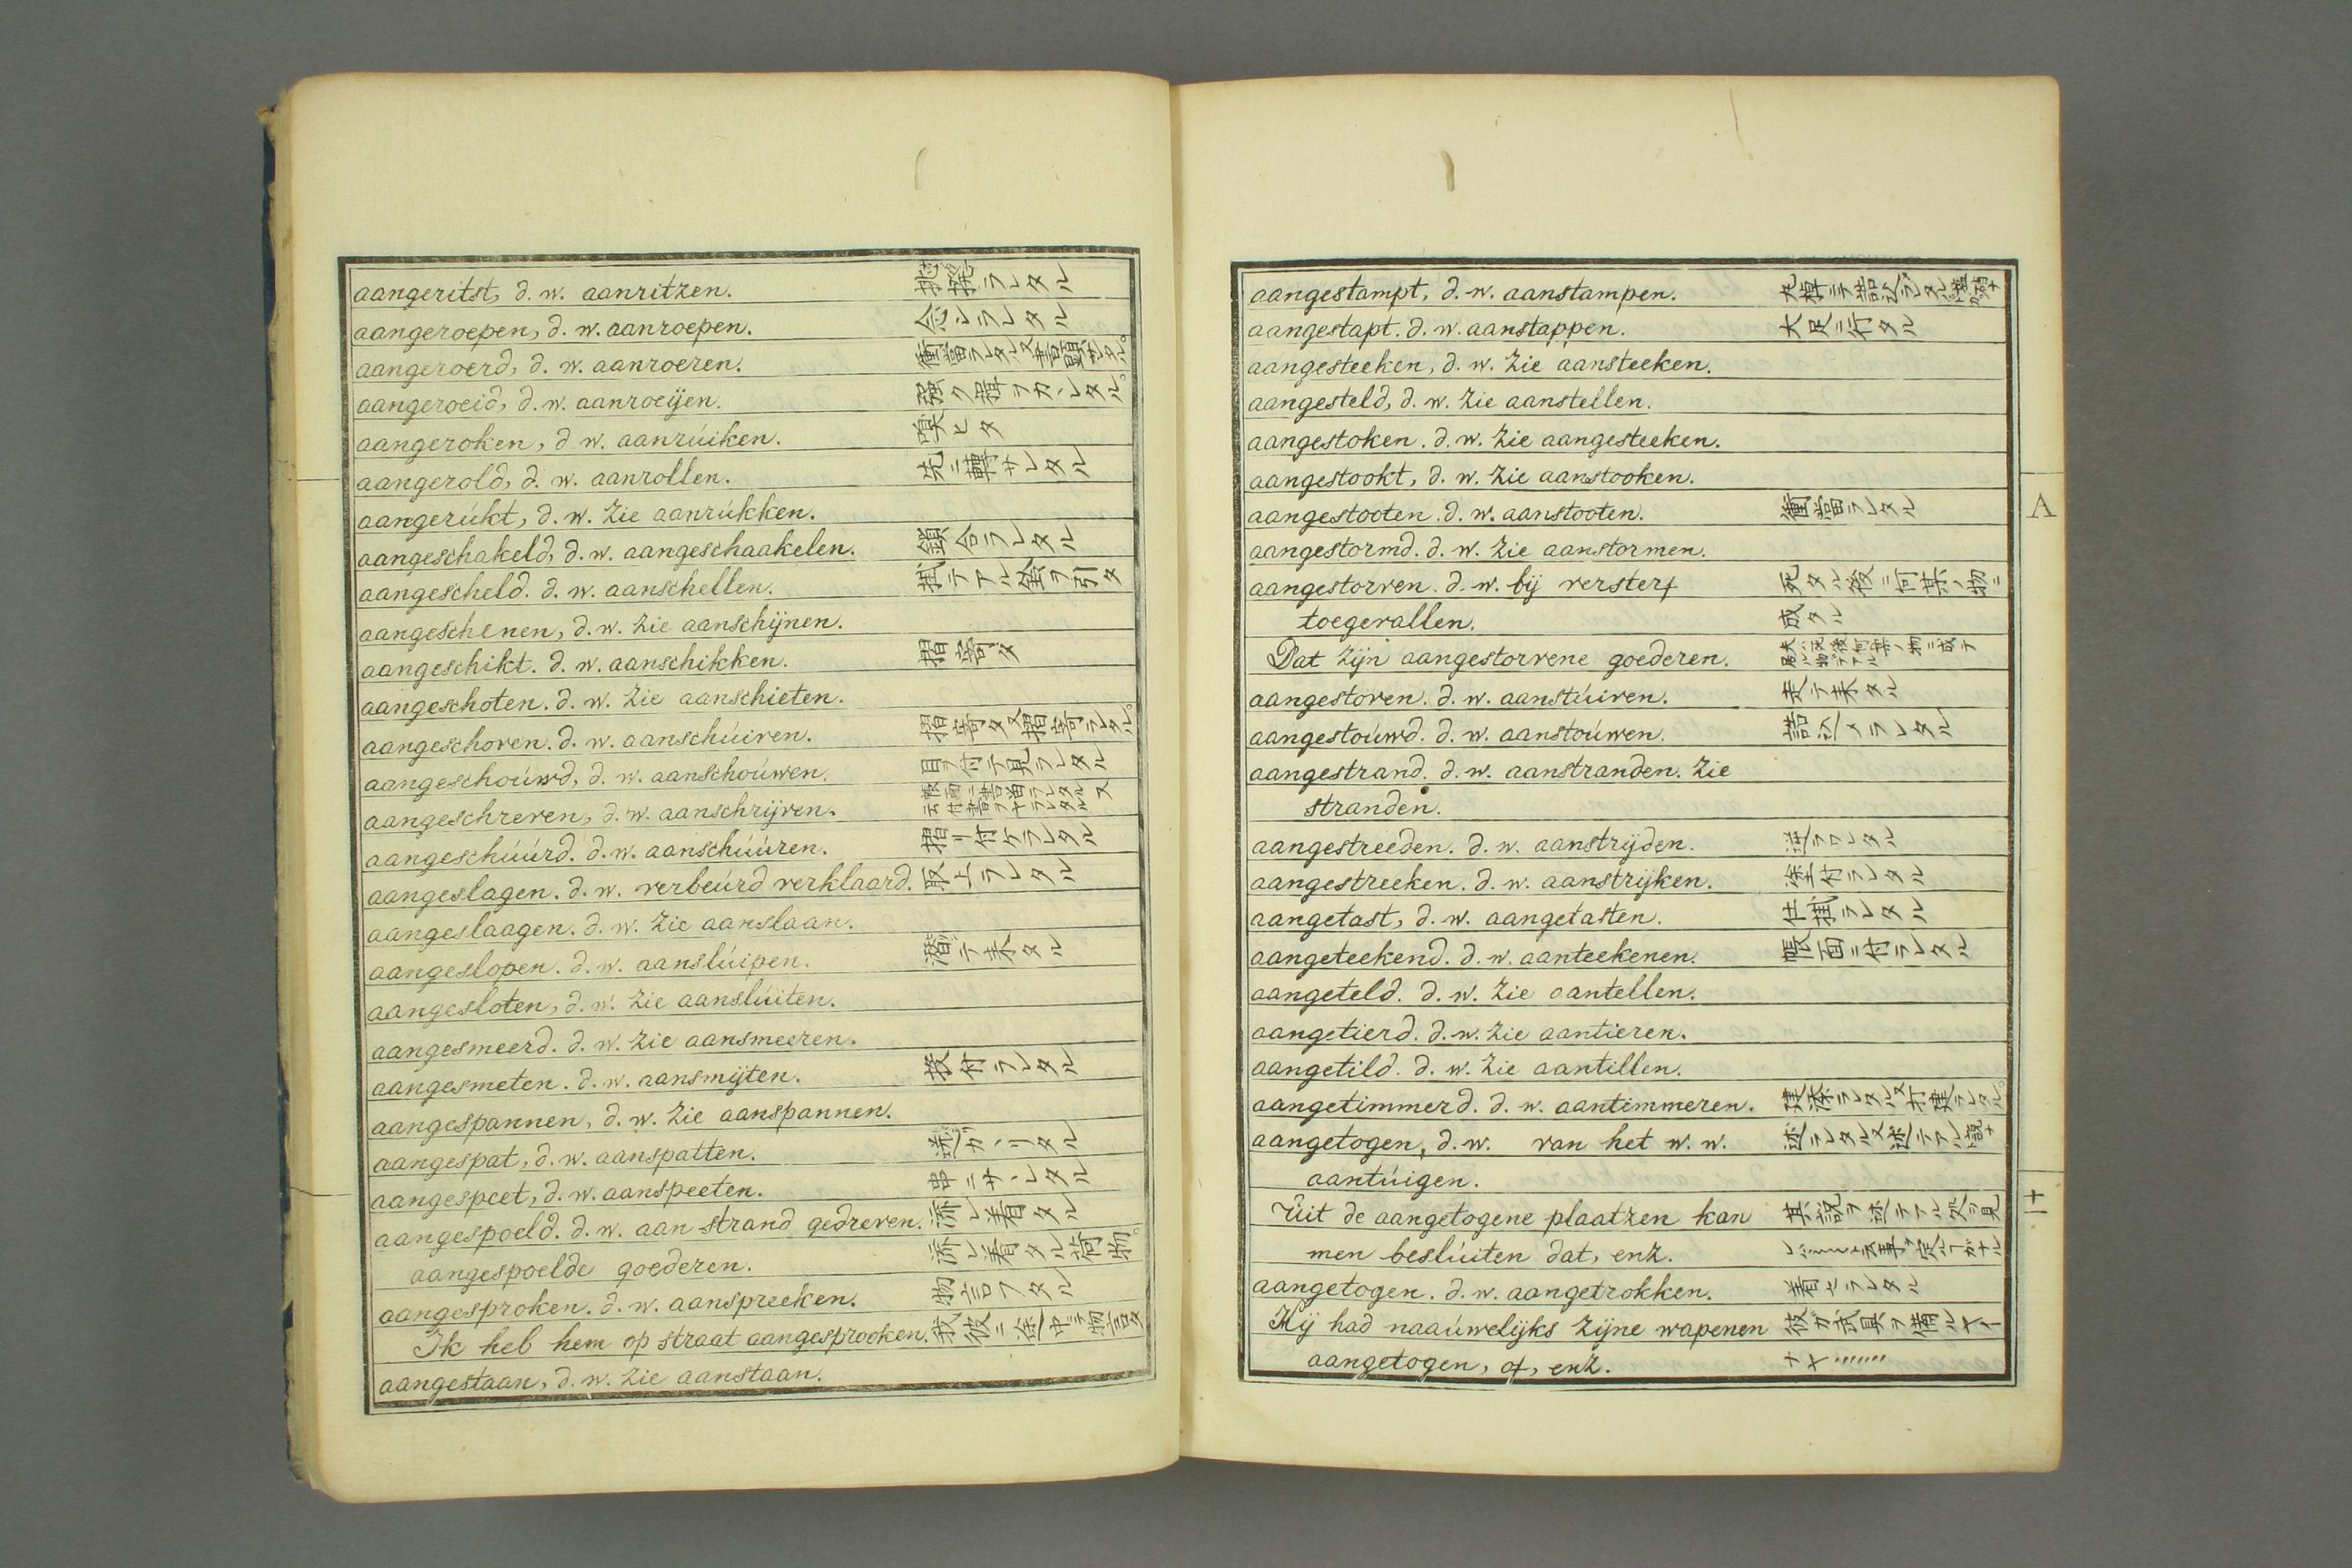 aangeritst, d. w. aanritzen. 挑撥ラレタル
aangeroepen, d. w. aanroepen. 念シラレタル
aangeroerd, d. w. aanroeren. 衝當ラレタル又書顕サレタル。
aangeroeid, d. w. aanroeijen. 強ク
aangeroken, d w. aanrúiken. 嗅ヒタ
aangerold, d. w. aanrollen. 先ニ轉サレタル
aangerúkt, d. w. Zie aanrúkken.
aangeschakeld, d. w. aangeschaakelen. 鎖合ラレタル
aangescheld. d. w. aanschellen. 掛テアル釜ヲ引タ
aangeschenen, d. w. Zie aanschijnen.
aangeschikt. d. w. aanschikken. 摺寄タ
aangeschoten. d. w. Zie aanschieten.
aangeschoven. d. w. aanschúiven. 摺寄タ又摺寄ラレタル。
aangeschoúwd, d. w. aanschoúwen. 目ヲ付テ見ラレタル
aangeschreven, d. w. aanschrijven. 帳面ニ書留ラレタル又
aangeschúúrd. d. w. aanschúúren. 摺リ付ケラレタル
aangeslagen. d. w. verbeúrd verklaard. 取上ラレタル
aangeslaagen. d. w. Zie aanslaan.
aangeslopen. d. w. aanslúipen. 潜テ来タル
aangesloten, d. w. Zie aanslúiten.
aangesmeerd. d. w. Zie aansmeeren.
aangesmeten. d. w. aansmijten. 投付ラレタル
aangespannen, d. w. Zie aanspannen.
aangespat, d. w. aanspatten. カヽリタル
aangespeet, d. w. aanspeeten. 串ニサヽレタル
aangespoeld. d. w. aan strand gedreven. 流レ着タル
aangespoelde goederen. 流レ着タル荷物。
aangesproken. d. w. aanspreeken. 物言フタル
Ik heb hem op straat aangesprooken. 我彼ニ途中ニテ物言タ
aangestaan, d. w. Zie aanstaan.
aangestampt, d. w. aanstampen.
aangestapt. d. w. aanstappen. 大足ニ行タル
aangesteeken, d. w. Zie aansteeken.
aangesteld, d. w. Zie aanstellen.
aangestoken. d. w. Zie aangesteeken.
aangestookt, d. w. Zie aanstooken.
aangestooten. d. w. aanstooten. 衝當ラレタル
aangestormd. d. w. Zie aanstormen.
aangestorven. d. w. bij versterf 死タル後ニ何某ノ物ニ
toegevallen. 成タル
Dat zijn aangestorvene goederen.
aangestoven. d. w. aanstúiven. 走テ来タル
aangestoúwd. d. w. aanstoúwen. 詰込メラレタル
aangestrand. d. w. aanstranden. Zie
stranden.
aangestreeden. d. w. aanstrijden. 逆ラワレタル
aangestreeken. d. w. aanstrijken. 塗付ラレタル
aangetast, d. w. aangetasten. 仕掛ラレタル
aangeteekend. d. w. aanteekenen. 帳面ニ付ラレタル
aangeteld. d. w. Zie aantellen.
aangetierd. d. w. Zie aantieren.
aangetild. d. w. Zie aantillen.
aangetimmerd. d. w. aantimmeren. 建添ラレタル又打建ラレタル。
aangetogen, d. w. van het w. w. 述ラレタル又述テアル
aantúigen.
Uit de aangetogene plaatzen kan 其説ヲ述テアル処ヲ見
men beslúiten dat, enz.
aangetogen. d. w. aangetrokken. 着セラレタル
Hij had naaúwelijks zijne wapenen 彼ガ武具ヲ備ルヤイ
aangetogen, of, enz. ナヤ……
A
十一